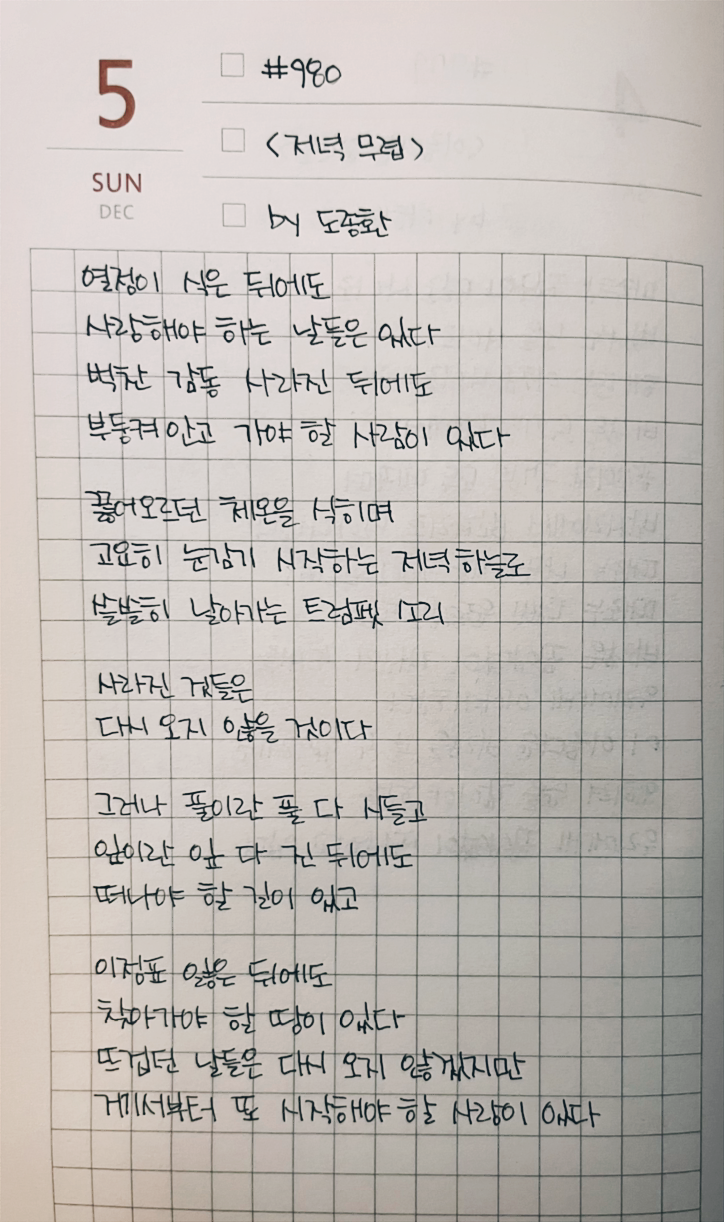 5
SUN
DEC
#980
<저녁 무렵>
by 도종환
열정이 식은 뒤에도
사랑해야 하는 날들은 있다
벅찬 감동 사라진 뒤에도
부둥켜안고 가야 할 사람이 있다
끓어오르던 체온을 식히며
고요히 눈감기 시작하는 저녁하늘로
쓸쓸히 날아가는 트럼펫 소리
사라진 것들은
다시 오지 않을 것이다
그러나 풀이란 풀 다 시들고
잎이란 잎 다 진 뒤에도
떠나야 할 길이 있고
이정표 잃은 뒤에도
찾아가야 할 땅이 있다
뜨겁던 날들은 다시 오지 않겠지만
거기서부터 또 시작해야 할 사랑이 있다